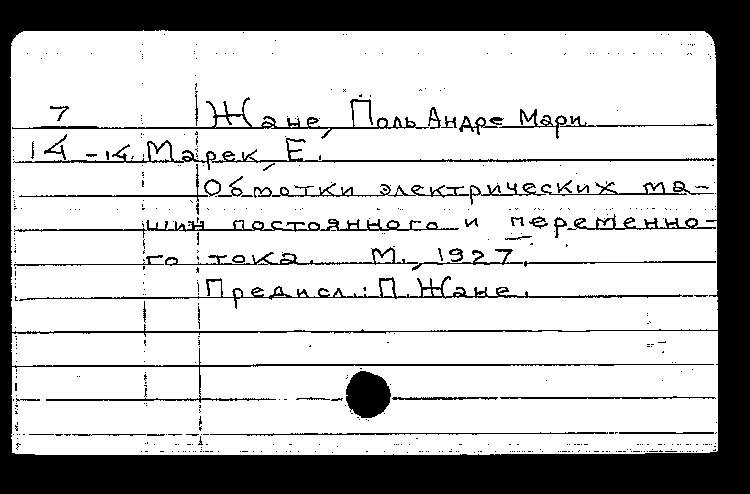 7 Жане, Поль Андре Мари
14 -14. Марек, Е.
Обмотки электрических ма-
шин постоянного и переменно-
го тока. М., 1927.
Предисл.: П. Жане.